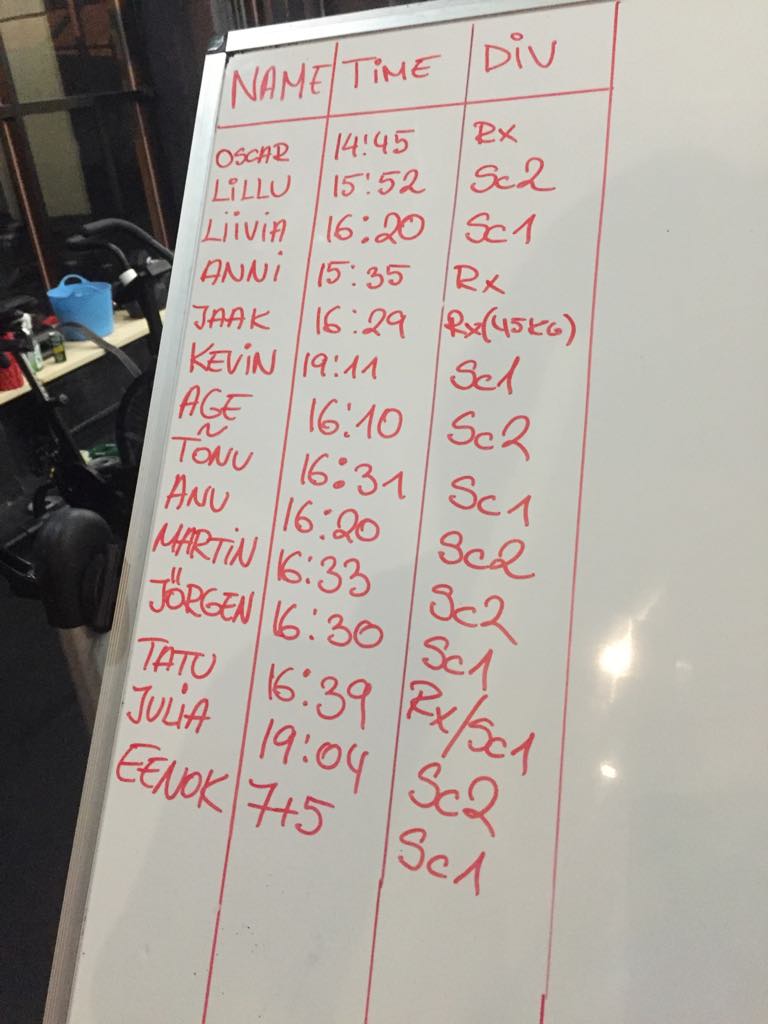 NAME TIME DIV
OSCAR 14:45 Rx
LILLU 15:52 Sc2
LIIVIA 16:20 Sc1
ANNI 15:35 Rx
JAAK 16:29 Rx(45KG)
KEVIN 19:11 Sc1
AGE 16:10 Sc2
TÕNU 16:31 Sc1
ANU 16:20 Sc2
MARTIN 16:33 Sc2
JÖRGEN 16:30 Sc1
TATU 16:39 Rx/Sc1
JULIA 19:04 Sc2
EENOK 7+5 Sc1